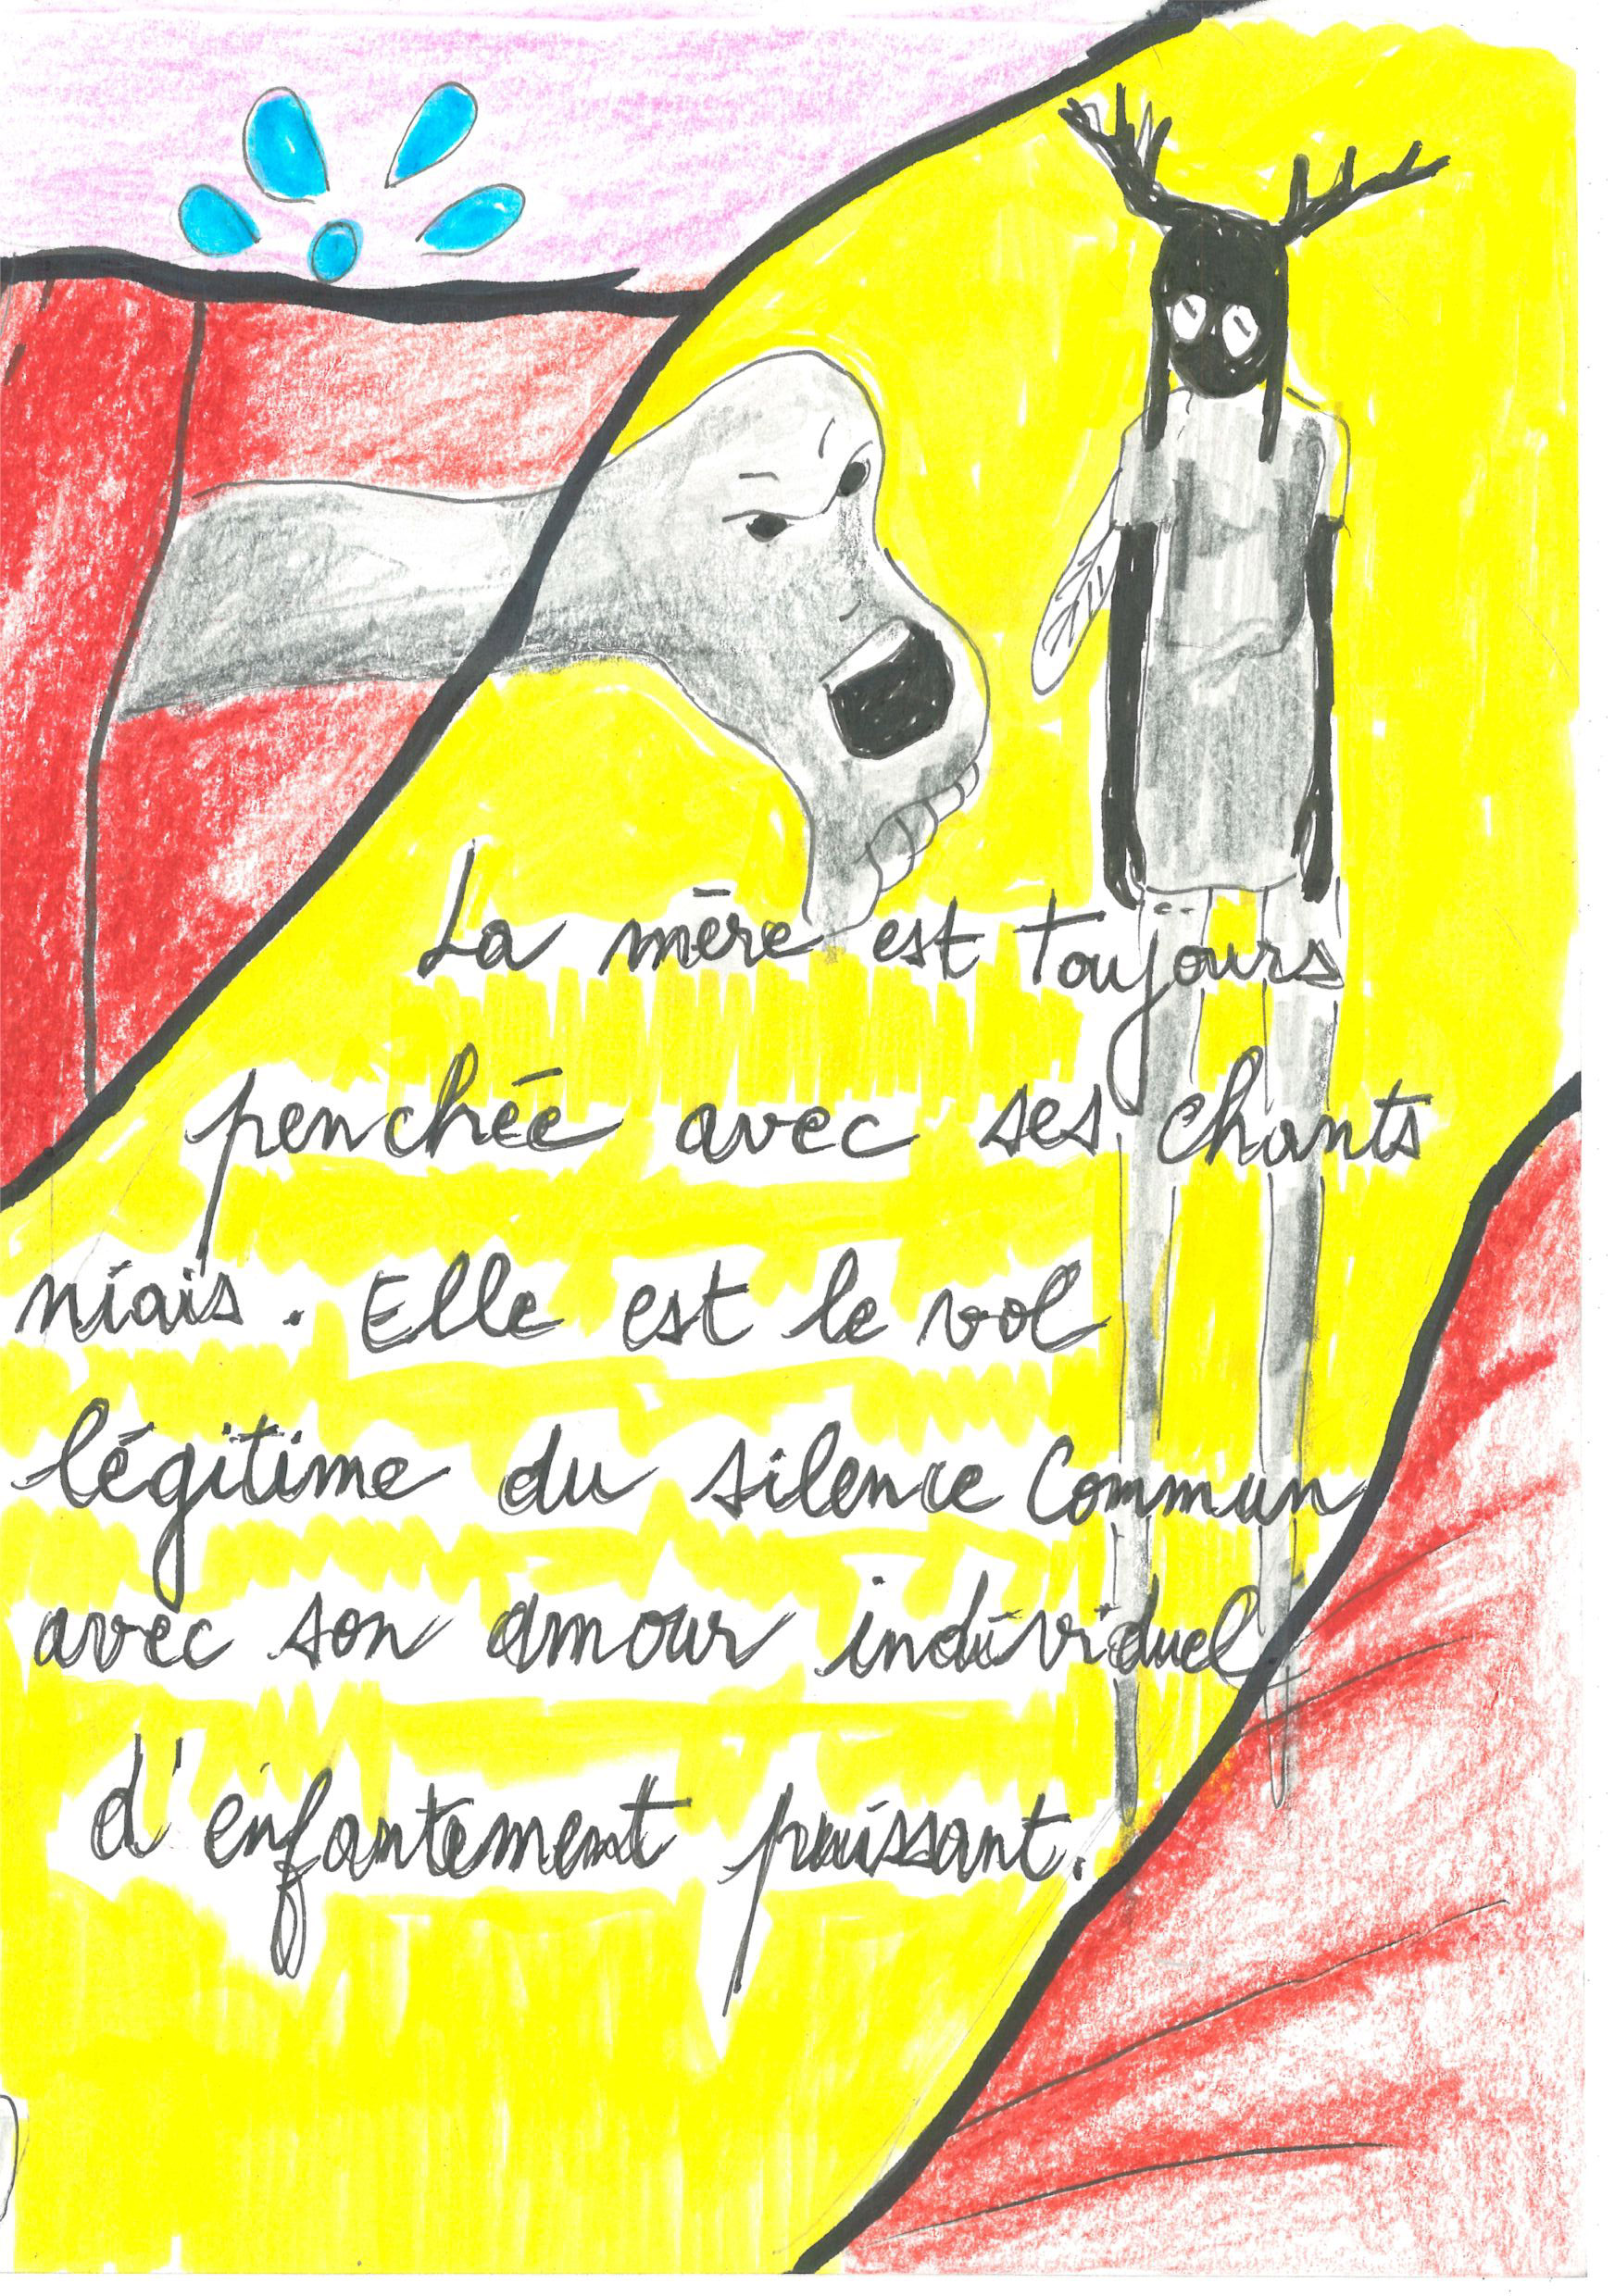 La mère est toujours
penchée avec ses chants
niais. Elle est le vol
légitime du silence commun
avec son amour individuel
d'enfantement puissant.